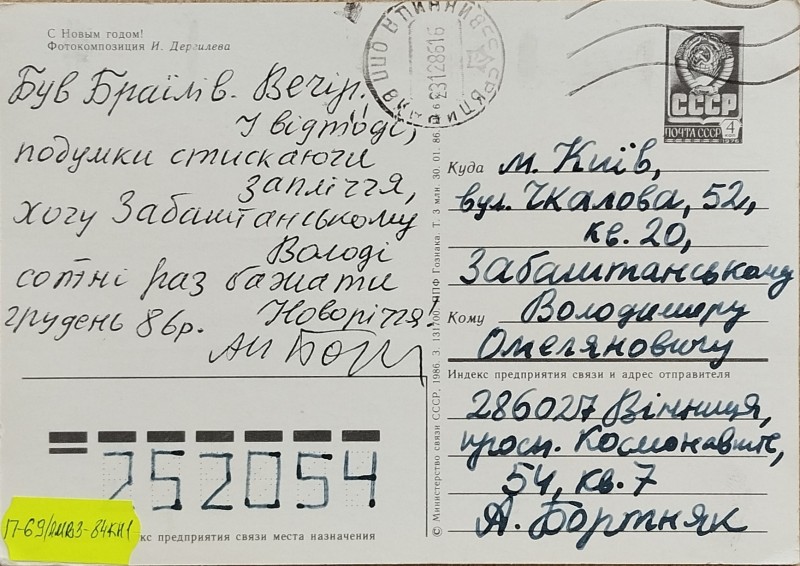 С Новым годом!
Фотокомпозиция И. Дергилева
Був Браїлів. Вечір.
І відтоді,
подумки стискаючи
запліччя,
хочу Забаштанському
Володі
сотні раз бажати
Новоріччя!
грудень 86р.
СССР
ПОЧТА СССР
4
КОП
1976
Куда м. Київ,
вул. Чкалова, 52,
кв. 20,
Забаштанському
Кому Володимиру
Омеляновичу
Индекс предприятия связи и адрес отправителя
286027 Вінниця,
просп. Космонавтів,
54, кв. 7
А. Бортняк
252054
П-69/
-84КН1
кс предприятия связи места назначения
© Министерство связи СССР, 1986. З. 131700. ППФ Гознака. Т. 3 млн. 30. 01. 86.